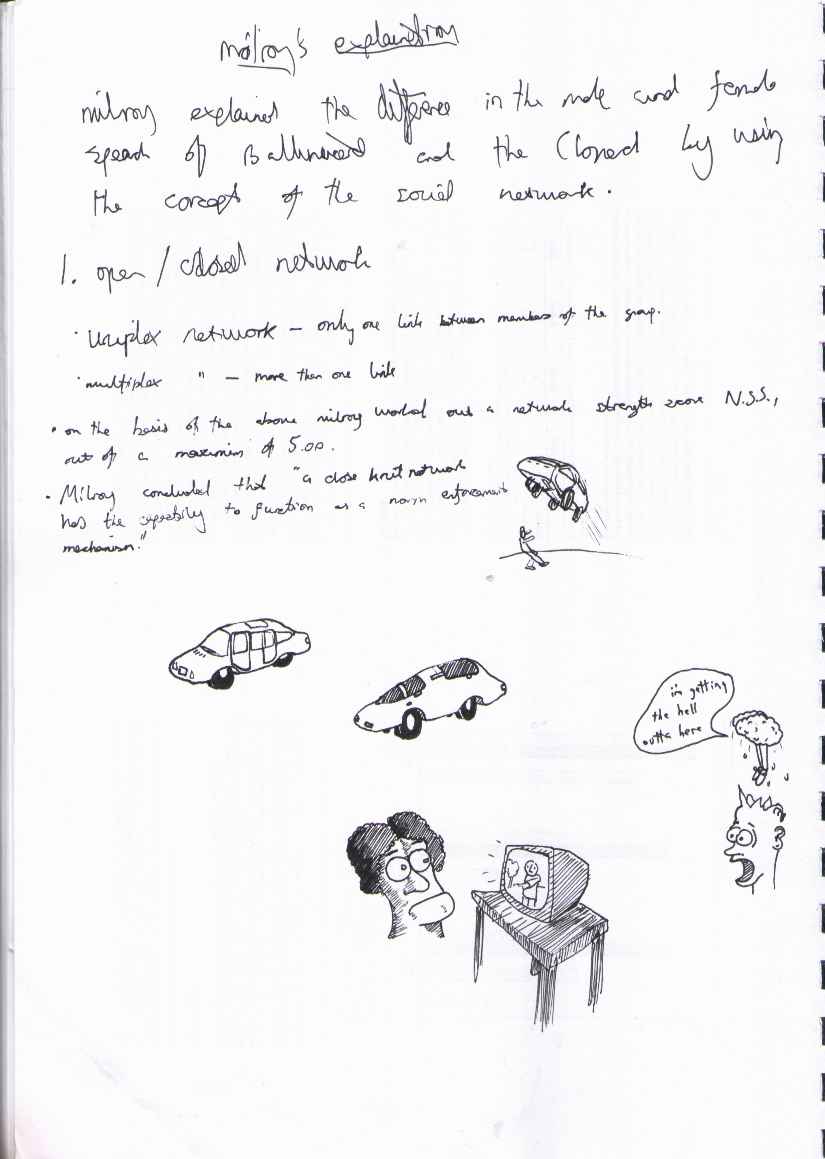 milroy's explanation
milroy explained the difference in the male and female
speach of Ballymacarrett and the Cloned by using
the concept of the social network.
1. open / closed network
• Uniplex network – only one link between members of the group.
• multiplex " – more than one link
• on the basis of the above milroy worked out a network strength score N.S.S.,
out of a maximum of 5.00.
• Milroy concluded that "a close knit network
has the capability to function as a norm enforcement
mechanism."
i'm getting
the hell
outta here